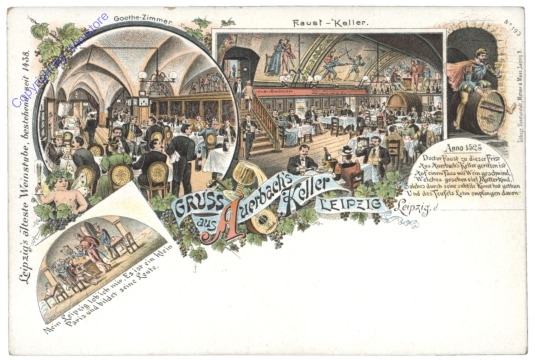 Goethe-Zimmer
Faust-Keller.
Nº 193
Leipzig's älteste Weinstube, bestehend seit 1438.
GRUSS
aus
Auerbach's
Keller
LEIPZIG
Anno 1525
Doctor Faust zu dieser Frist
Aus Auerbach's Keller geritten ist
Auf einem Fass mit Wein geschwind,
Welches gesehen viel Mutterkind,
Solches durch seine subtile Kunst hat gethan
Und des Teufels Lohn empfangen davon.
Leipzig, d.
Mein Leipzig lob ich mir. Es ist ein klein
Paris und bildet seine Leute.